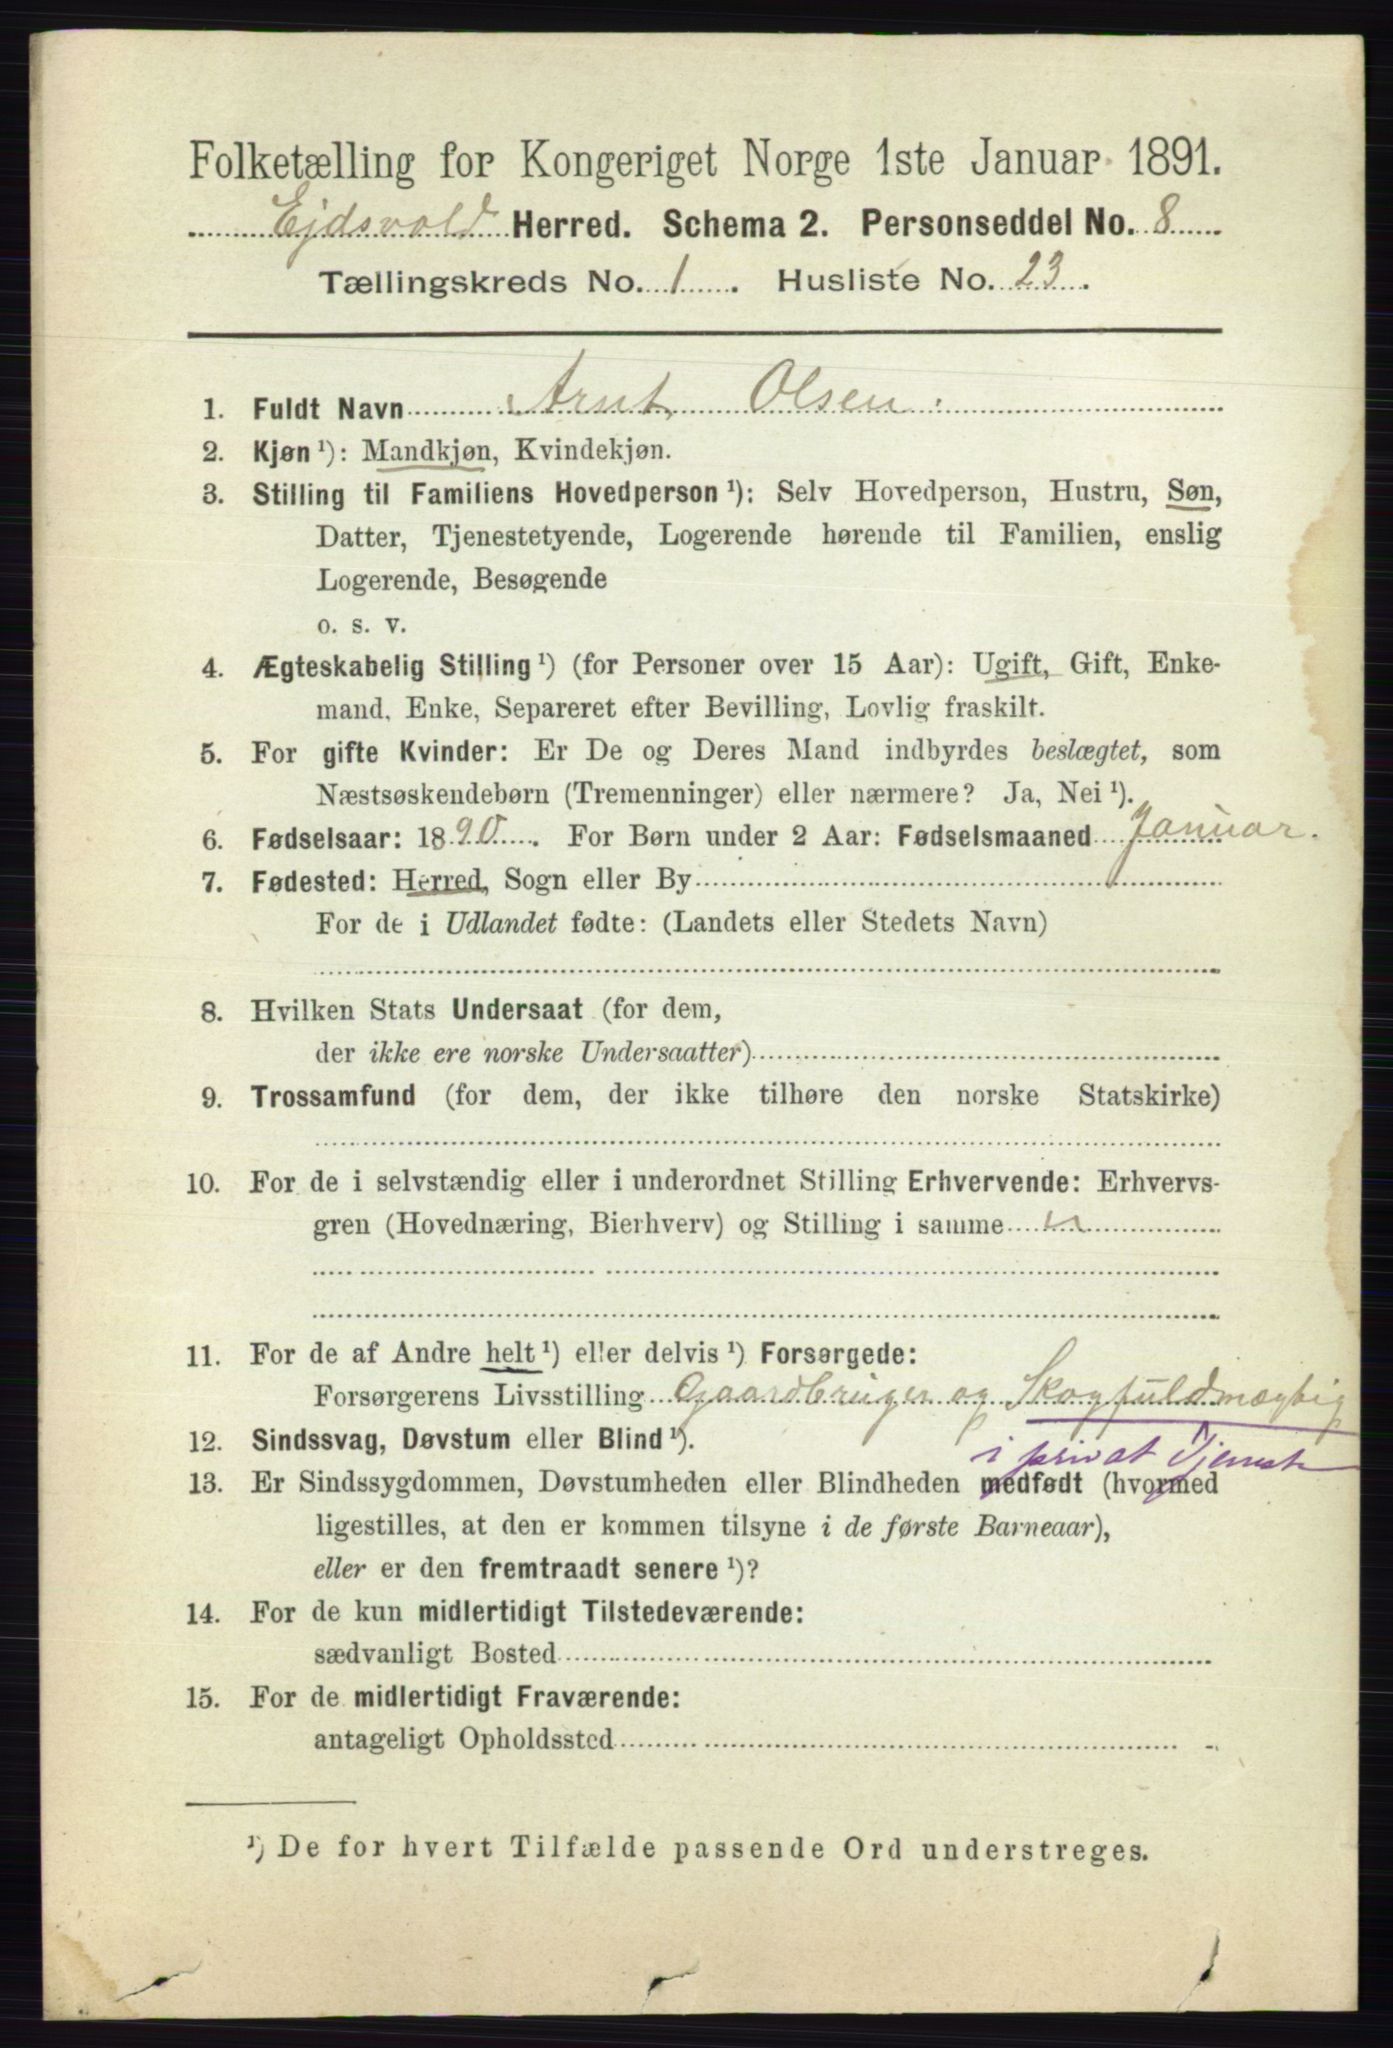 Folketælling for Kongeriget Norge 1ste Januar 1891.
Ejdsvold Herred. Schema 2. Personseddel No. 8
Tællingskreds No. 1. Husliste No. 23.
1. Fuldt Navn Arnt Olsen.
2. Kjøn ¹): Mandkjøn, Kvindekjøn.
3. Stilling til Familiens Hovedperson ¹): Selv Hovedperson, Hustru, Søn,
Datter, Tjenestetyende, Logerende hørende til Familien, enslig
Logerende, Besøgende
o. s. v.
4. Ægteskabelig Stilling ¹) (for Personer over 15 Aar): Ugift, Gift, Enke-
mand, Enke, Separeret efter Bevilling, Lovlig fraskilt.
5. For gifte Kvinder: Er De og Deres Mand indbyrdes beslægtet, som
Næstsøskendebørn (Tremenninger) eller nærmere? Ja, Nei ¹).
6. Fødselsaar: 1890. For Børn under 2 Aar: Fødselsmaaned Januar.
7. Fødested: Herred, Sogn eller By
For de i Udlandet fødte: (Landets eller Stedets Navn)
8. Hvilken Stats Undersaat (for dem,
der ikke ere norske Undersaatter)
9. Trossamfund (for dem, der ikke tilhøre den norske Statskirke)
10. For de i selvstændig eller i underordnet Stilling Erhvervende: Erhvervs-
gren (Hovednæring, Bierhverv) og Stilling i samme
11. For de af Andre helt ¹) eller delvis ¹) Forsørgede:
Forsørgerens Livsstilling Gaardbruger og Skogfuldmægtig
i privat Tjeneste
12. Sindssvag, Døvstum eller Blind ¹).
13. Er Sindssygdommen, Døvstumheden eller Blindheden medfødt (hvormed
ligestilles, at den er kommen tilsyne i de første Barneaar),
eller er den fremtraadt senere ¹)?
14. For de kun midlertidigt Tilstedeværende:
sædvanligt Bosted
15. For de midlertidigt Fraværende:
antageligt Opholdssted
¹) De for hvert Tilfælde passende Ord understreges.